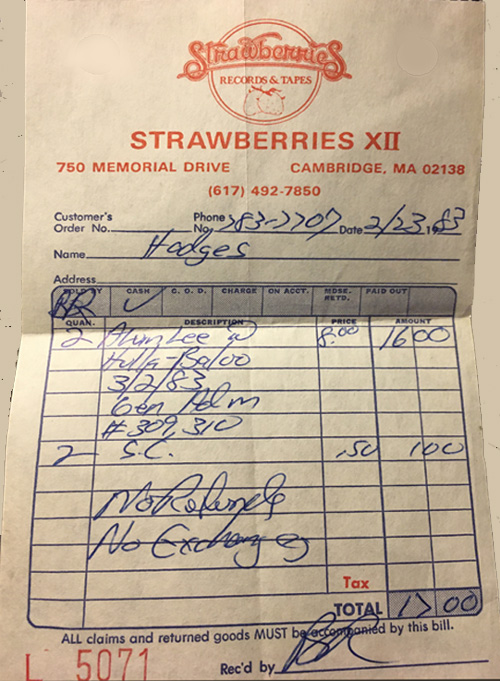 Strawberries
RECORDS & TAPES
STRAWBERRIES XII
750 MEMORIAL DRIVE CAMBRIDGE, MA 02138
(617) 492-7850
Customer's Order No. Phone No. 783-7707 Date 2/23 1983
Name Hodges
Address
SOLD BY CASH C. O. D. CHARGE ON ACCT. MDSE. RETD. PAID OUT
RR ✓
QUAN. DESCRIPTION PRICE AMOUNT
2 Alvin Lee 8.00 16 00
Hulla-Baloo
3/2/83
Gen Adm
# 309, 310
2 S.C. .50 1 00
No Refunds
No Exchanges
Tax
TOTAL 17 00
ALL claims and returned goods MUST be accompanied by this bill.
L 5071 Rec'd by RR